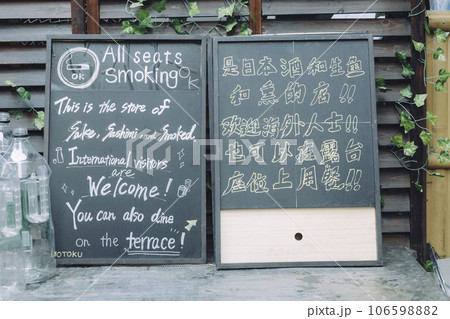 OK
All seats
Smoking OK
This is the store of
Sake, Sashimi and Smoked.
International visitors
are
Welcome!
You can also dine
on the terrace!
是日本酒和生鱼
和熏的店!!
欢迎海外人士!!
也可以在露台
座位上用餐!!
pixta.jp - 106598882